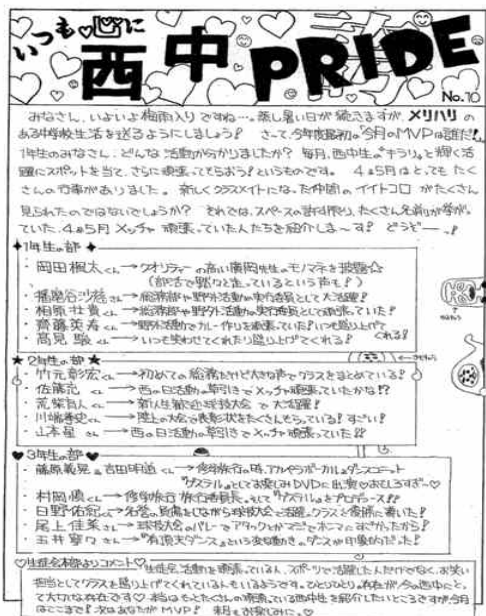 いつも心に
西中PRIDE
No.10
みなさん、いよいよ梅雨入りですね…。蒸し暑い日が続きますが、メリハリの
ある中学校生活を送るようにしましょう! さって、今年度最初の今月のMVPは誰だ!!
1年生のみなさん、どんな活動か分かりましたか? 毎月、西中生の“キラリ”と輝く活
躍にスポットを当て、さらに頑張ってもらおう!というものです。 4月5月はとってもたく
さんの行事がありました。 新しくクラスメイトになった仲間のイイトコロがたくさん
見られたのではないでしょうか? それでは、スペースの許す限り、たくさん名前が挙がっ
ていた、4月5月メッチャ頑張っていた人たちを紹介しま〜す! どうぞー!
1年生の部
・岡田楓太くん→クオリティーの高い廣岡先生のモノマネを披露☆
(部活で黙々と走っているという声も!)
・播磨谷沙穂さん→総務部や野外活動の実行委員として大活躍!
・相原壮貴くん→総務部や野外活動の実行委員として頑張っていた!
・齊藤英寿くん→野外活動でカレー作りを頑張っていた!いつも盛り上げて
くれる!
・高見駿くん→いつも笑わせてくれたり盛り上げてくれる!
★2年生の部★
・竹元彰宏くん→初めての総務だけど大きな声でクラスをまとめている!
・佐藤 くん→西の日活動の草引きでメッチャ頑張っていたかな!?
・荒柴 人くん→新入生歓迎球技大会で大活躍!
・川端 史くん→陸上の大会で表彰状をたくさんもらっている!すごい!
・山本 さん→西の日活動の草引きでメッチャ頑張っていた!!
♥3年生の部♥
・藤原義晃&吉田 くん→修学旅行の時、アカペラボーカル&ダンスユニット
“ゲステル”としてお楽しみDVDに出演♡おもしろすぎ〜♡
・村岡優くん→修学旅行 旅行委員長。そして“ゲステル”をプロデュース!!
・日野佑紀くん→名誉の負傷をしながら球技大会で活躍。クラスを優勝に導いた!
・尾上佳菜さん→球技大会のバレーでアタックとかマジでホマにすごかったから!
・玉井寧々さん→“有頂天ダンス”という変な動きのダンスが印象的だった!
♡生徒会本部よりコメント♡
生徒会活動を頑張っている人、スポーツで活躍した人だけでなく、お笑い
担当としてクラスを盛り上げてくれている人もいるようです。ひとりひとりの存在が、今の西中にとっ
て大切な存在です♡ 本当はもっとたくさんの頑張っている西中生を紹介したいところですが今月
はここまで! 次はあなたがMVP! 来月もお楽しみに…♡